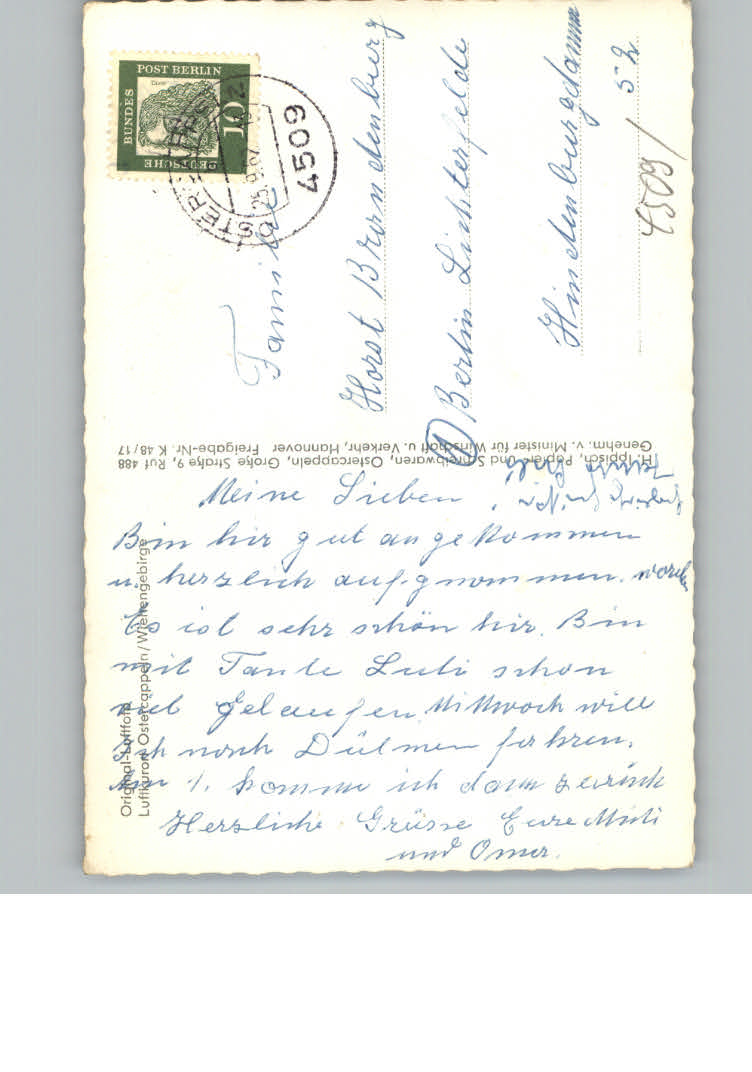 DEUTSCHE
BUNDES
POST BERLIN
10
Dürer
4509
Familie
Horst Brandenburg
1 Berlin Lichterfelde
Hindenburgdamm
52
4509/
H. Ippisch, Papier- und Schreibwaren, Ostercappeln, Große Straße 9, Ruf 488
Genehm. v. Minister für Wirtschaft u. Verkehr, Hannover Freigabe-Nr. K 48/17
Original-Luftfoto
Luftkurort Ostercappeln/Wiehengebirge
Meine Lieben,
Bin hir gut angekommen
u. herzlich aufgnommen. worden
Es ist sehr schön hir. Bin
mit Tante Luti schon
viel gelaufen Mittwoch will
ich noch Dülmen fahren.
Am 1. komme ich dann zurück
Herzliche Grüsse Eure Muti
und Omer.